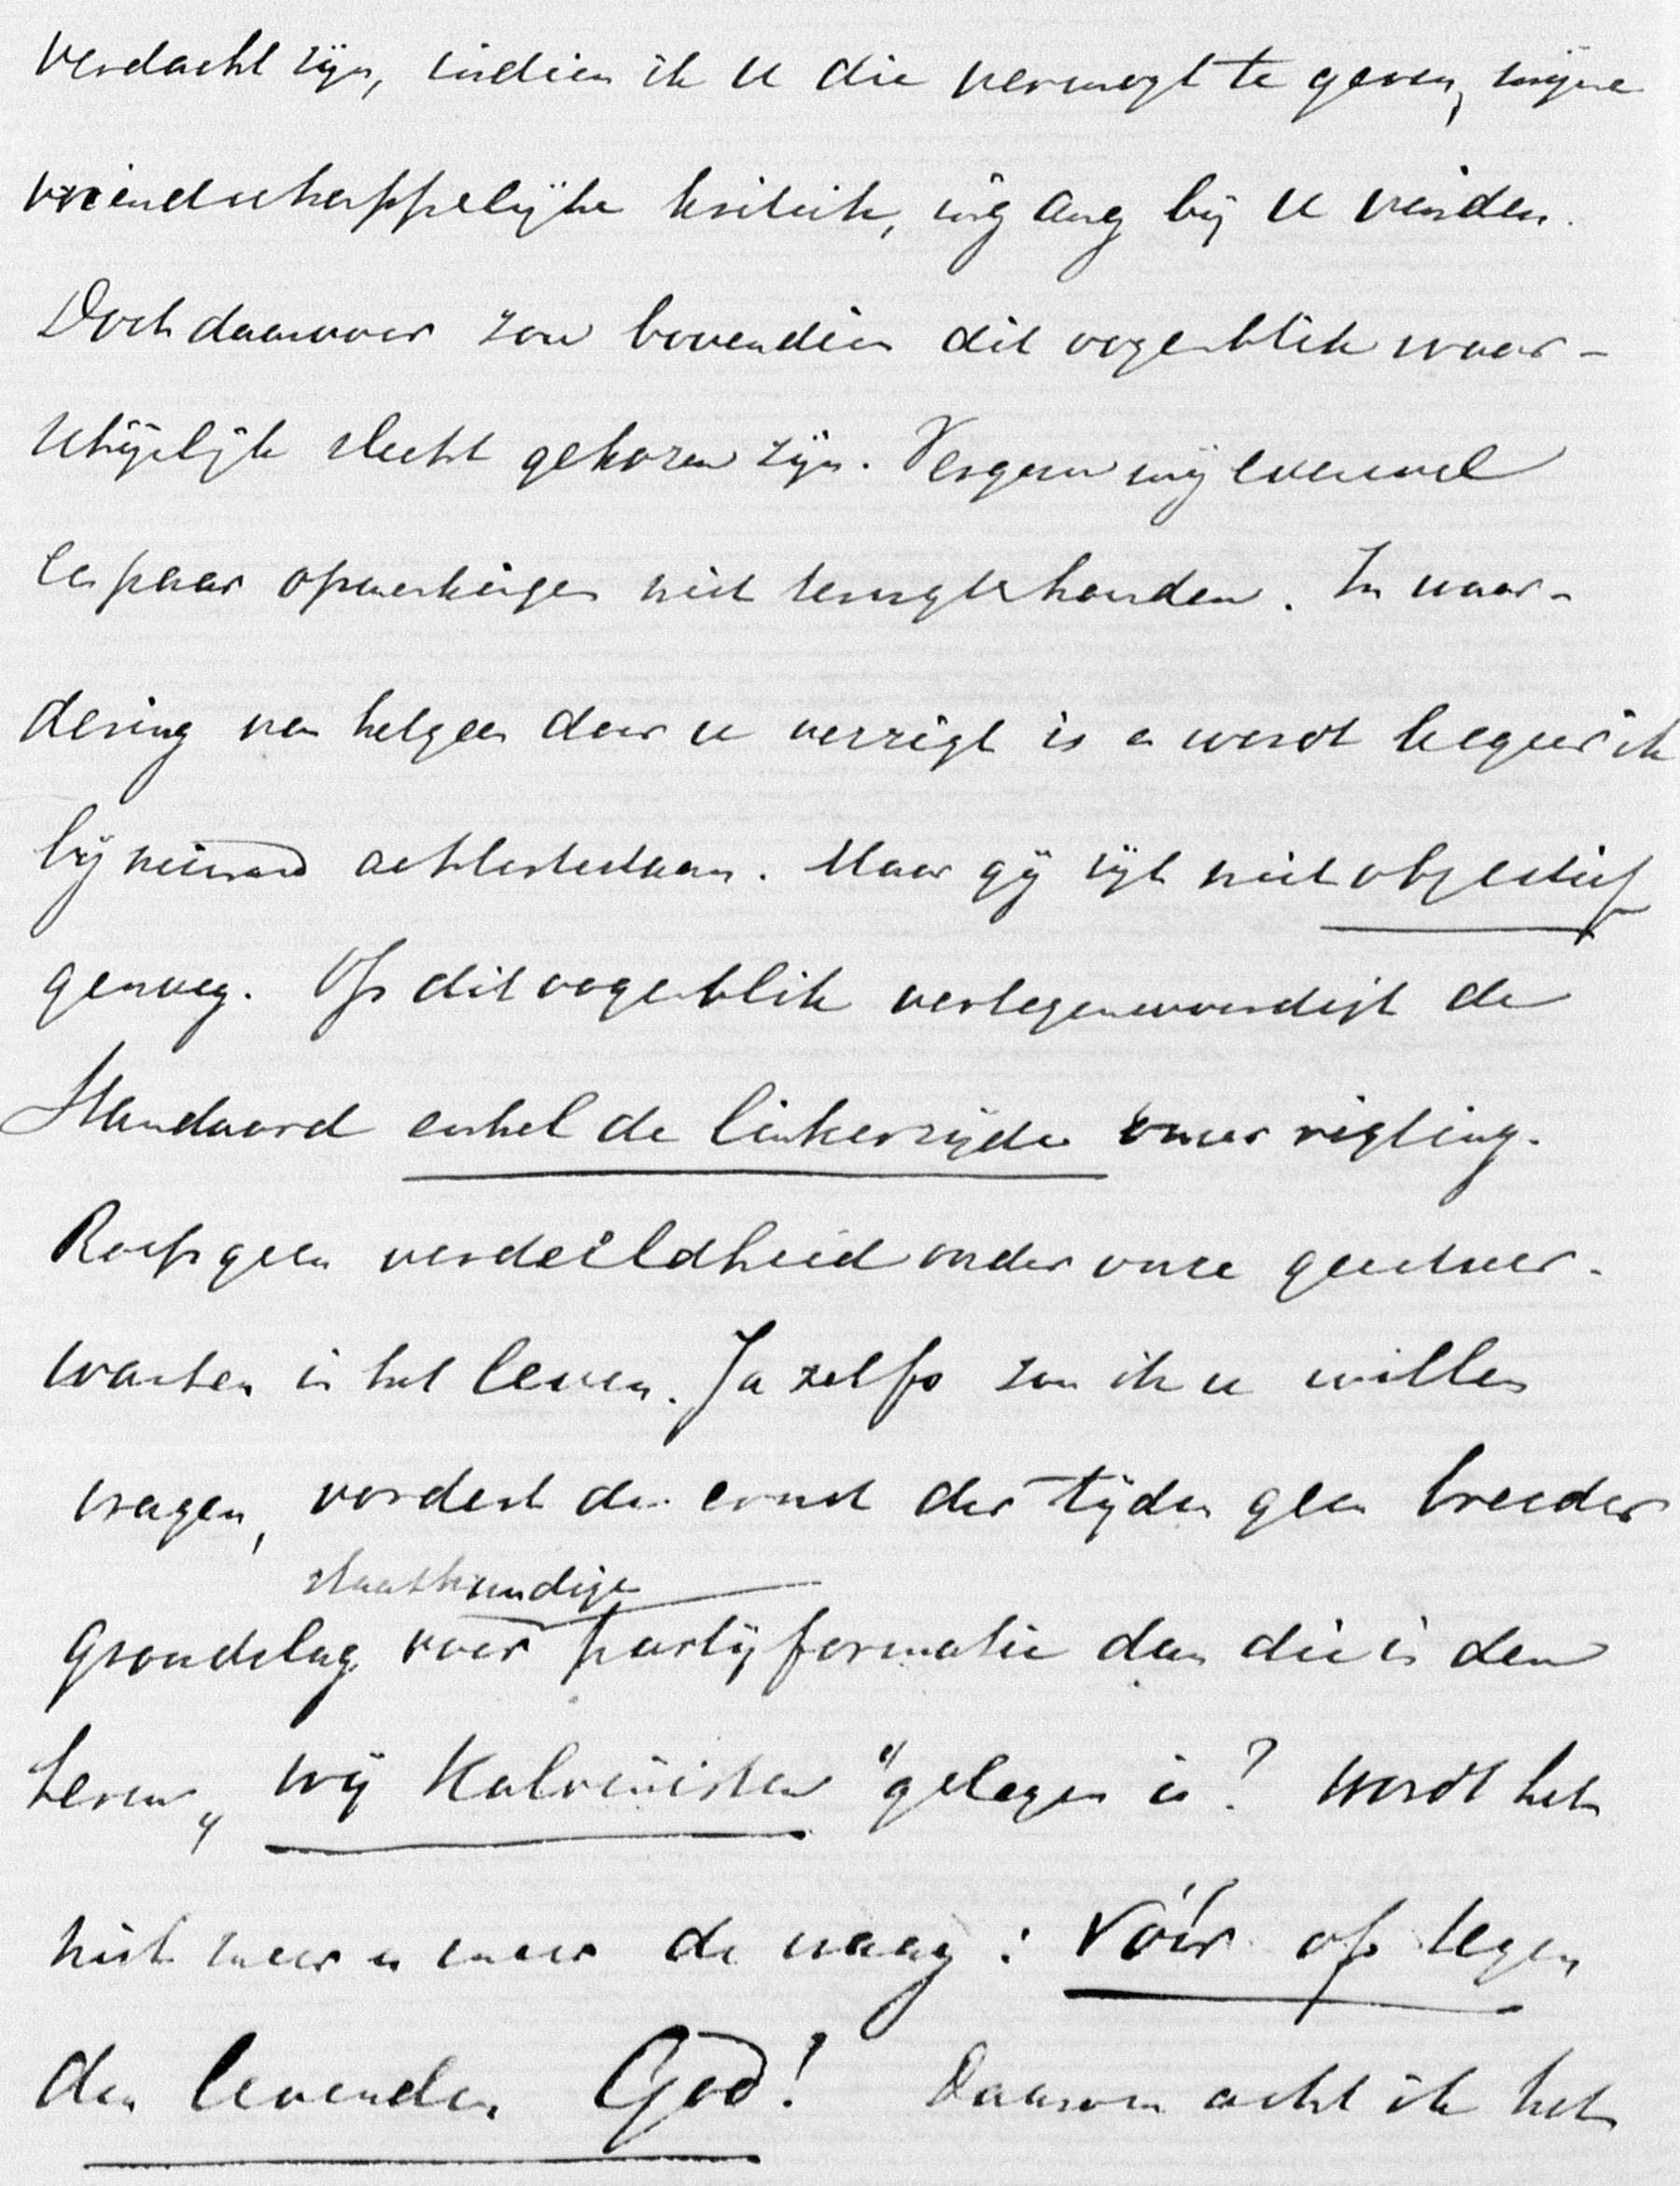 verdacht zijn, indien ik u die vermogt te geven, mijne
vriendschappelijke kritiek, ingang bij u vinden.
Doch daarvoor zou bovendien dit oogenblik waar-
schijnlijk slecht gekozen zijn. Vergun mij evenwel
een paar opmerkingen niet terugtehouden. In waar-
dering van hetgeen door u verrigt is en wordt begeer ik
bij niemand achtertestaan. Maar gij zijt niet objectief
genoeg. Op dit oogenblik vertegenwoordigt de
Standaard enkel de linkerzijde onzer rigting.
Roep geen verdeeldheid onder onze geestver-
wanten in het leven. Ja zelfs zou ik u willen
vragen, vordert de ernst der tijden geen breeder
staatkundige
grondslag voor partijformatie dan die in den
leven „wij Kalvinisten" gelegen is? Wordt het
niet meer en meer de vraag: Vóór of tegen
den levenden God! Daarom acht ik het